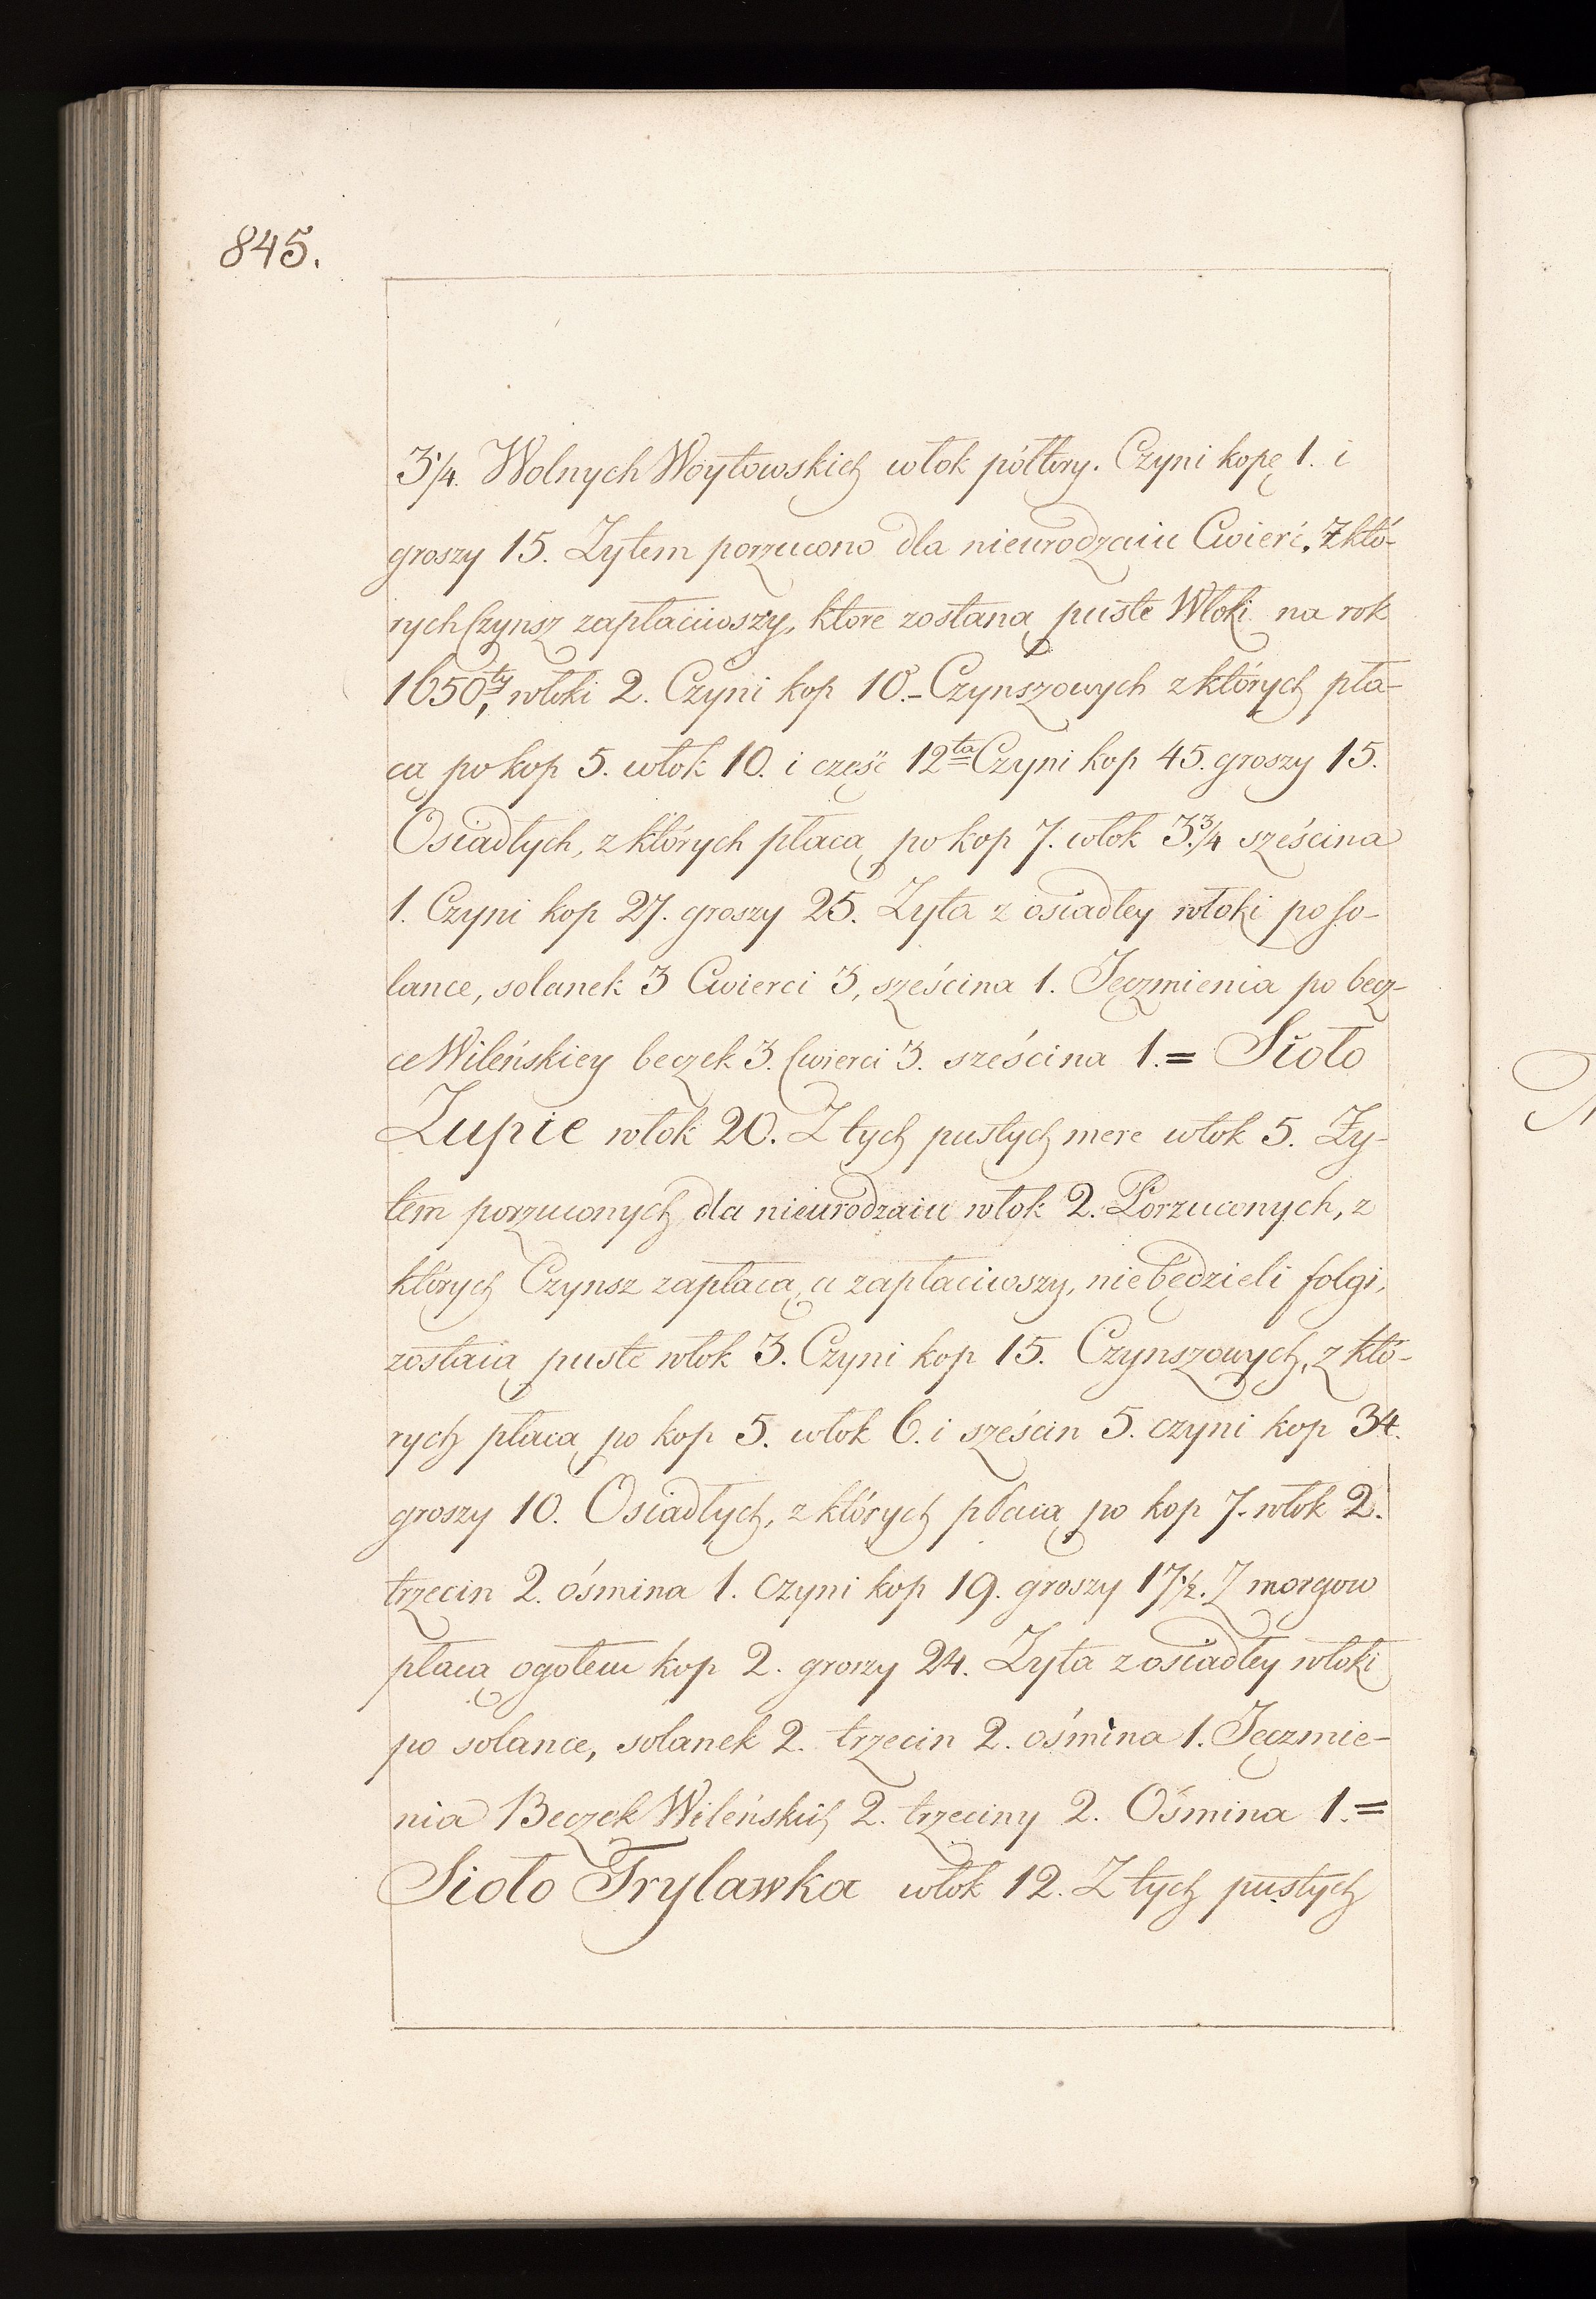 845.
3¼. Wolnych Woytowskich włok półtory. Czyni kopę 1. i
groszy 15. Zytem porzucono dla nieurodzaiu Cwierć. Z któ-
rych Czynsz zapłaciwszy, ktore zostaną puste Włoki na rok
1650ty, włoki 2. Czyni kop 10.- Czynszowych z których pła-
cą po kop 5. włok 10. i część 12ta Czyni kop 45. groszy 15.
Osiadłych, z których płacą po kop 7. włok 3.¾ sześcina
1. Czyni kop 27. groszy 25. Zyta z osiadłey włoki po so-
lance, solanek 3 Cwierci 3, sześcina 1. Jęczmienia po becz-
ce Wileńskiey beczek 3. Cwierci 3. sześcina 1.= Sioło
Zupie włok 20. Z tych pustych mere włok 5. Ży-
tem porzuconych dla nieurodzaiu włok 2. Porzuconych, z
których Czynsz zapłacą, a zapłaciwszy, niebędzieli folgi,
zostaią puste włok 3. Czyni kop 15. Czynszowych, z któ-
rych płacą po kop 5. włok 6. i sześcin 5. czyni kop 34.
groszy 10. Osiadłych, z których płacą po kop 7. włok 2.
trzecin 2. ośmina 1. czyni kop 19. groszy 17½. Z morgow
płacą ogołem kop 2. groszy 24. Zyta z osiadłey włoki
po solance, solanek 2. trzecin 2. ośmina 1. Jęczmie-
nia Beczek Wileńskich 2. trzeciny 2. Ośmina 1.=
Sioło Trylawka włok 12. Z tych pustych